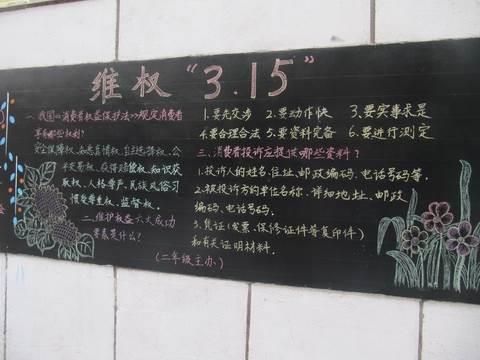 维权“3.15”
一、我国《消费者权益保护法》规定消费者
享有哪些权利？
安全保障权、知悉真情权、自主选择权、公
平交易权、获得赔偿权、知识获
取权、人格尊严、民族风俗习
惯受尊重权、监督权。
二、维护权益六大成功
要素是什么？
1、要先交涉 2、要动作快 3、要实事求是
4、要合理合法 5、要资料完备 6、要进行测定
三、消费者投诉应提供哪些资料？
1、投诉人的姓名、住址、邮政编码、电话号码等.
2、被投诉方的单位名称、详细地址、邮政
编码、电话号码.
3、凭证（发票、保修证件等复印件）
和有关证明材料.
（二年级主办）